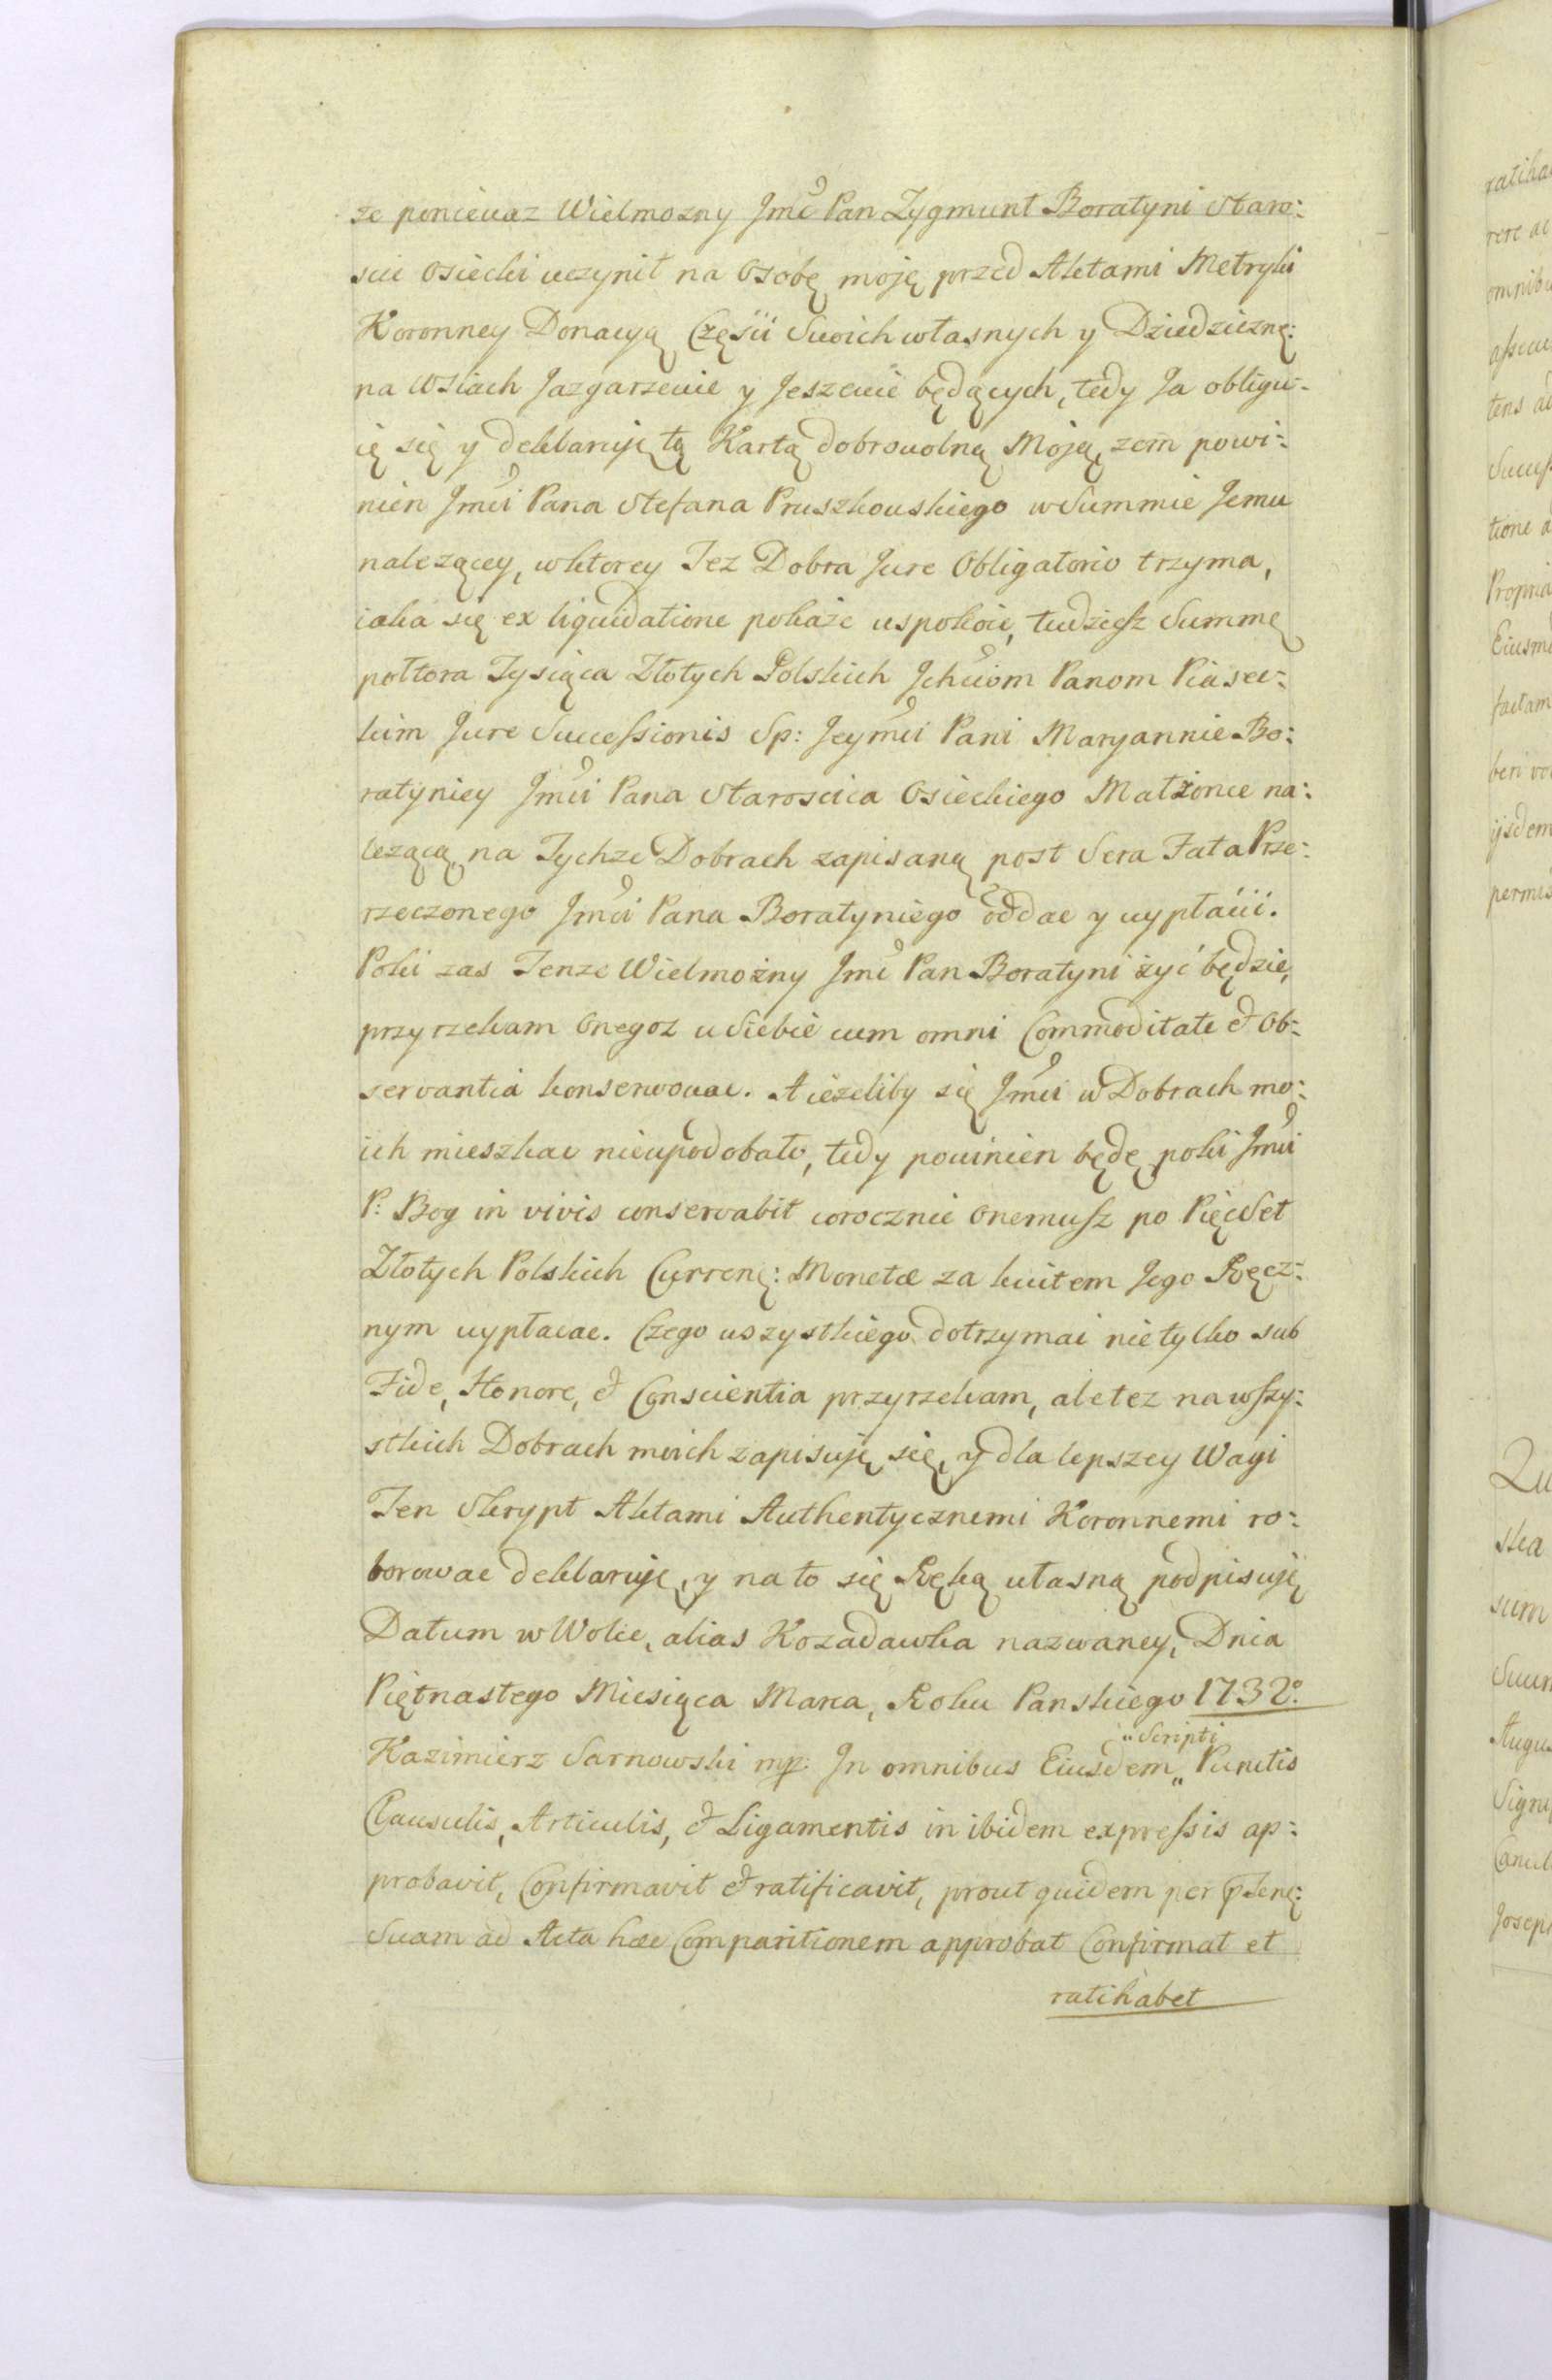 ze poniewaz Wielmozny Jmć Pan Zygmunt Boratyni Staro:
scic Osiecki uczynił na Osobę moię przed Aktami Metryki
Koronney Donacyą Częsci Swoich własnych y Dziedziczne:
na wsiach Jazgarzewie y Jeszewie będących, tedy Ja obligu-
ię się y deklaruię tą Kartą dobrowolną Moją, zem powi:
nien Jmci Pana Stefana Pruszkowskiego w Summie Jemu
nalezącey, w ktorey Tez Dobra Jure Obligatorio trzyma,
iaka się ex liquidatione pokaze uspokoic, tudziesz Summę
połtora Tysiąca Złotych Polskich Jchciom Panom Piasec-
kim Jure Successionis Sp: Jeymci Pani Maryannie Bo:
ratyniey Jmci Pana Staroscica Osieckiego Małżonce na:
lezącą na Tychze Dobrach zapisaną post Sera Fata Prze:
rzeczonego Jmci Pana Boratyniego oddac y wypłacic.
Poki zas Tenze Wielmożny Jmć Pan Boratyni żyć będzie,
przyrzekam Onegoz u Siebie cum omni Commoditate et Ob-
servantia konserwowac. A iezeliby się Jmci w Dobrach mo:
ich mieszkac nieupodobało, tedy powinien będę poki Jmci
P: Bog in vivis conservabit corocznie Onemusz po PięcSet
Złotych Polskich Curren: Monetæ za kwitem Jego Ręcz-
nym wypłacac. Czego wszystkiego dotrzymac nietylko sub
Fide, Honore, et Conscientia przyrzekam, aletez na wszy:
stkich Dobrach moich zapisuię się, y dla lepszey Wagi
Ten Skrypt Aktami Authentycznemi Koronnemi ro:
borowac deklaruię, y na to się Ręką własną podpisuię
Datum w Wolce, alias Kozadawka nazwaney, Dnia
Piętnastego Miesiąca Marca, Roku Panskiego 1732º
Kazimierz Sarnowski mp. Jn omnibus Eiusdem " Scripti Punctis
Clausulis, Articulis, et Ligamentis in ibidem expressis ap:
probavit, Confirmavit et ratificavit, prout quidem per pSen:
Suam ad Acta hæc Comparitionem approbat Confirmat et
ratihabet